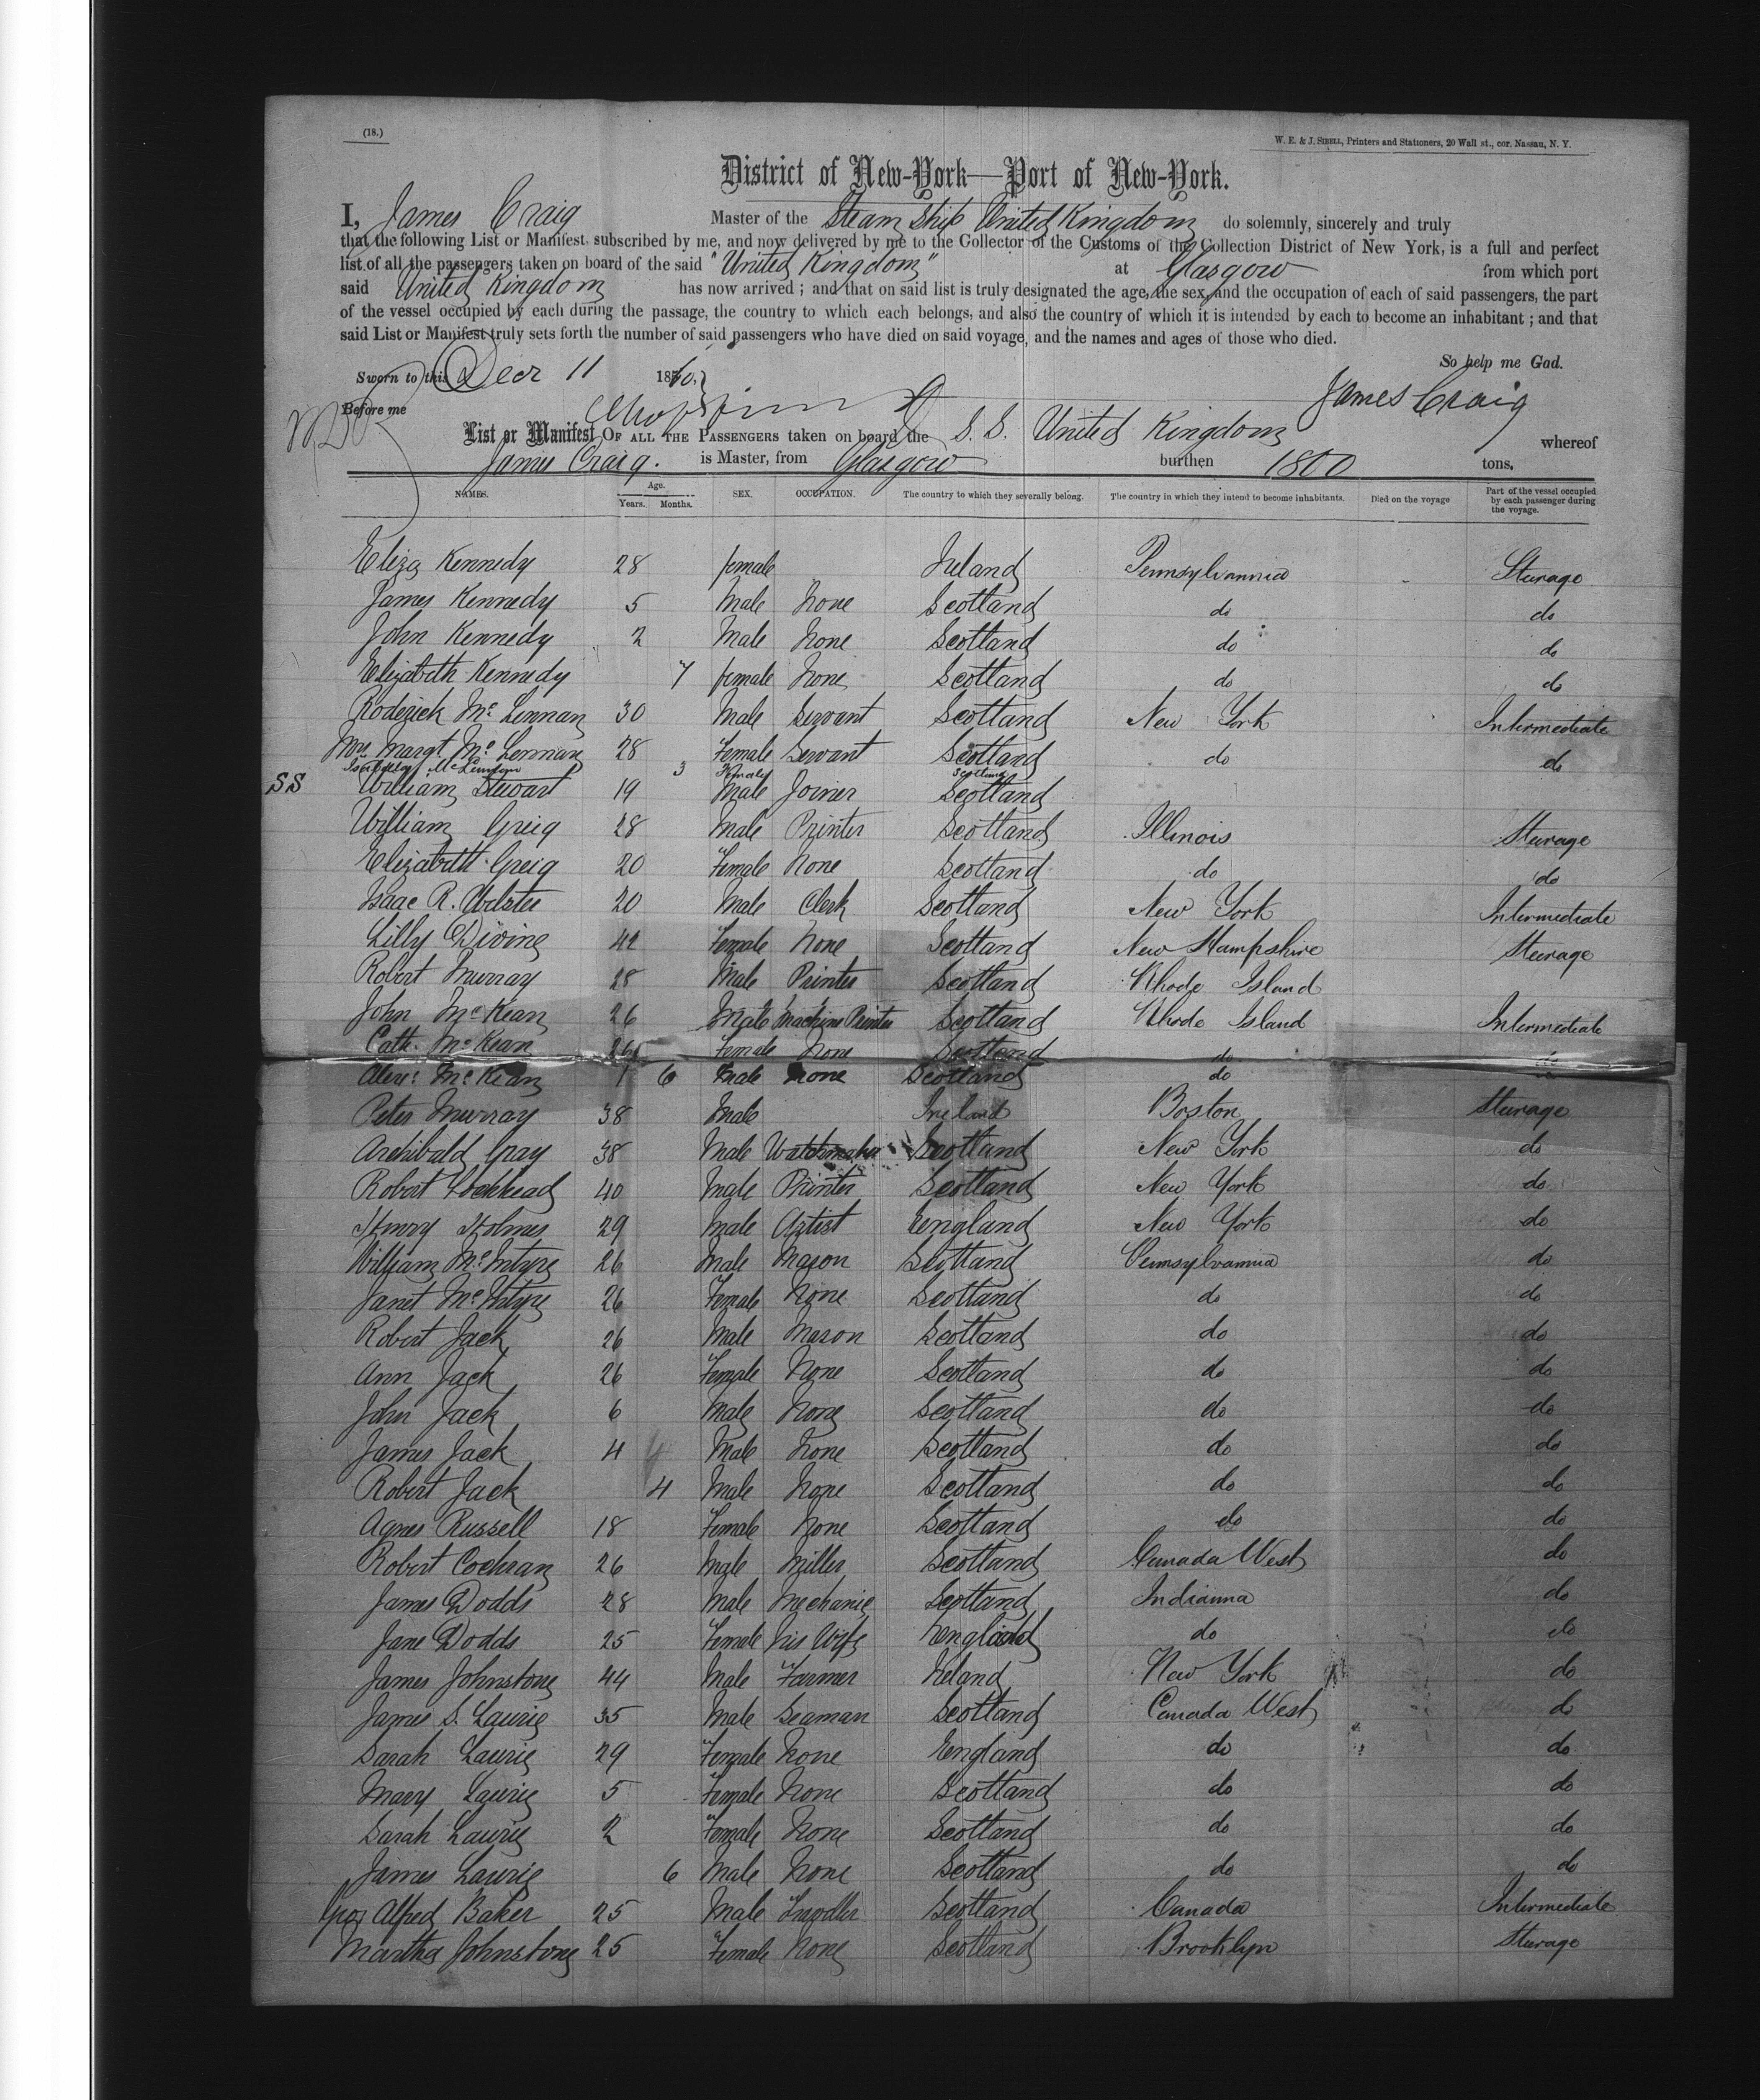 (18.)
W. E. & J. SIBELL, Printers and Stationers, 20 Wall st., cor. Nassau, N. Y.
District of New-York—Port of New-York.
I, James Craig Master of the Steam Ship United Kingdom do solemnly, sincerely and truly
that the following List or Manifest, subscribed by me, and now delivered by me to the Collector of the Customs of the Collection District of New York, is a full and perfect
list of all the passengers taken on board of the said "United Kingdom" at Glasgow from which port
said United Kingdom has now arrived ; and that on said list is truly designated the age, the sex, and the occupation of each of said passengers, the part
of the vessel occupied by each during the passage, the country to which each belongs, and also the country of which it is intended by each to become an inhabitant ; and that
said List or Manifest truly sets forth the number of said passengers who have died on said voyage, and the names and ages of those who died.
So help me God.
Sworn to this Decr 11 1860,
Before me James Craig
List or Manifest OF ALL THE PASSENGERS taken on board the S. S. United Kingdom whereof
James Craig. is Master, from Glasgow burthen 1800 tons.
NAMES. Age. Years. Months. SEX. OCCUPATION. The country to which they severally belong. The country in which they intend to become inhabitants. Died on the voyage Part of the vessel occupied by each passenger during the voyage.
Eliza Kennedy 28 female Ireland Pennsylvannia Sturage
James Kennedy 5 Male None Scotland do do
John Kennedy 2 Male None Scotland do do
Elizabeth Kennedy 7 female None Scotland do do
Roderick Mc Lennan 30 Male Servant Scotland New York Intermediate
Mrs Margt. Mc Lennan 28 Female Servant Scotland do do
Isabella McLennan 3 Female Scotland
SS William Stewart 19 Male Joiner Scotland
William Greig 28 Male Printer Scotland Illinois Sturage
Elizabeth Greig 20 Female None Scotland do do
Isaac R. Webster 20 Male Clerk Scotland New York Intermediate
Lilly Divine 42 Female None Scotland New Hampshire Sturage
Robert Murray 28 Male Printer Scotland Rhode Island
John McKean 26 Male Machine Printer Scotland Rhode Island Intermediate
Cath. McKean 26 Female None Scotland do do
Alexr. McKean 1 6 Male None Scotland do do
Peter Murray 38 Male Ireland Boston Sturage
Archibald Gray 38 Male Watchmaker Scotland New York do
Robert Lochhead 40 Male Printer Scotland New York do
Henry Holmes 29 Male Artist England New York do
William McIntyre 26 Male Mason Scotland Pennsylvannia do
Janet McIntyre 26 Female None Scotland do do
Robert Jack 26 Male Mason Scotland do do
Ann Jack 26 Female None Scotland do do
John Jack 6 Male None Scotland do do
James Jack 4 Male None Scotland do do
Robert Jack 4 Male None Scotland do do
Agnes Russell 18 Female None Scotland do do
Robert Cochran 26 Male Miller Scotland Canada West do
James Dodds 28 Male Mechanic Scotland Indianna do
Jane Dodds 25 Female his Wife England do do
James Johnstone 44 Male Farmer Ireland New York do
James S. Laurie 35 Male Seaman Scotland Canada West do
Sarah Laurie 29 Female None England do do
Mary Laurie 5 Female None Scotland do do
Sarah Laurie 2 Female None Scotland do do
James Laurie 6 Male None Scotland do do
Geo. Alfred Baker 25 Male Scotland Canada Intermediate
Martha Johnstone 25 Female None Scotland Brooklyn Sturage